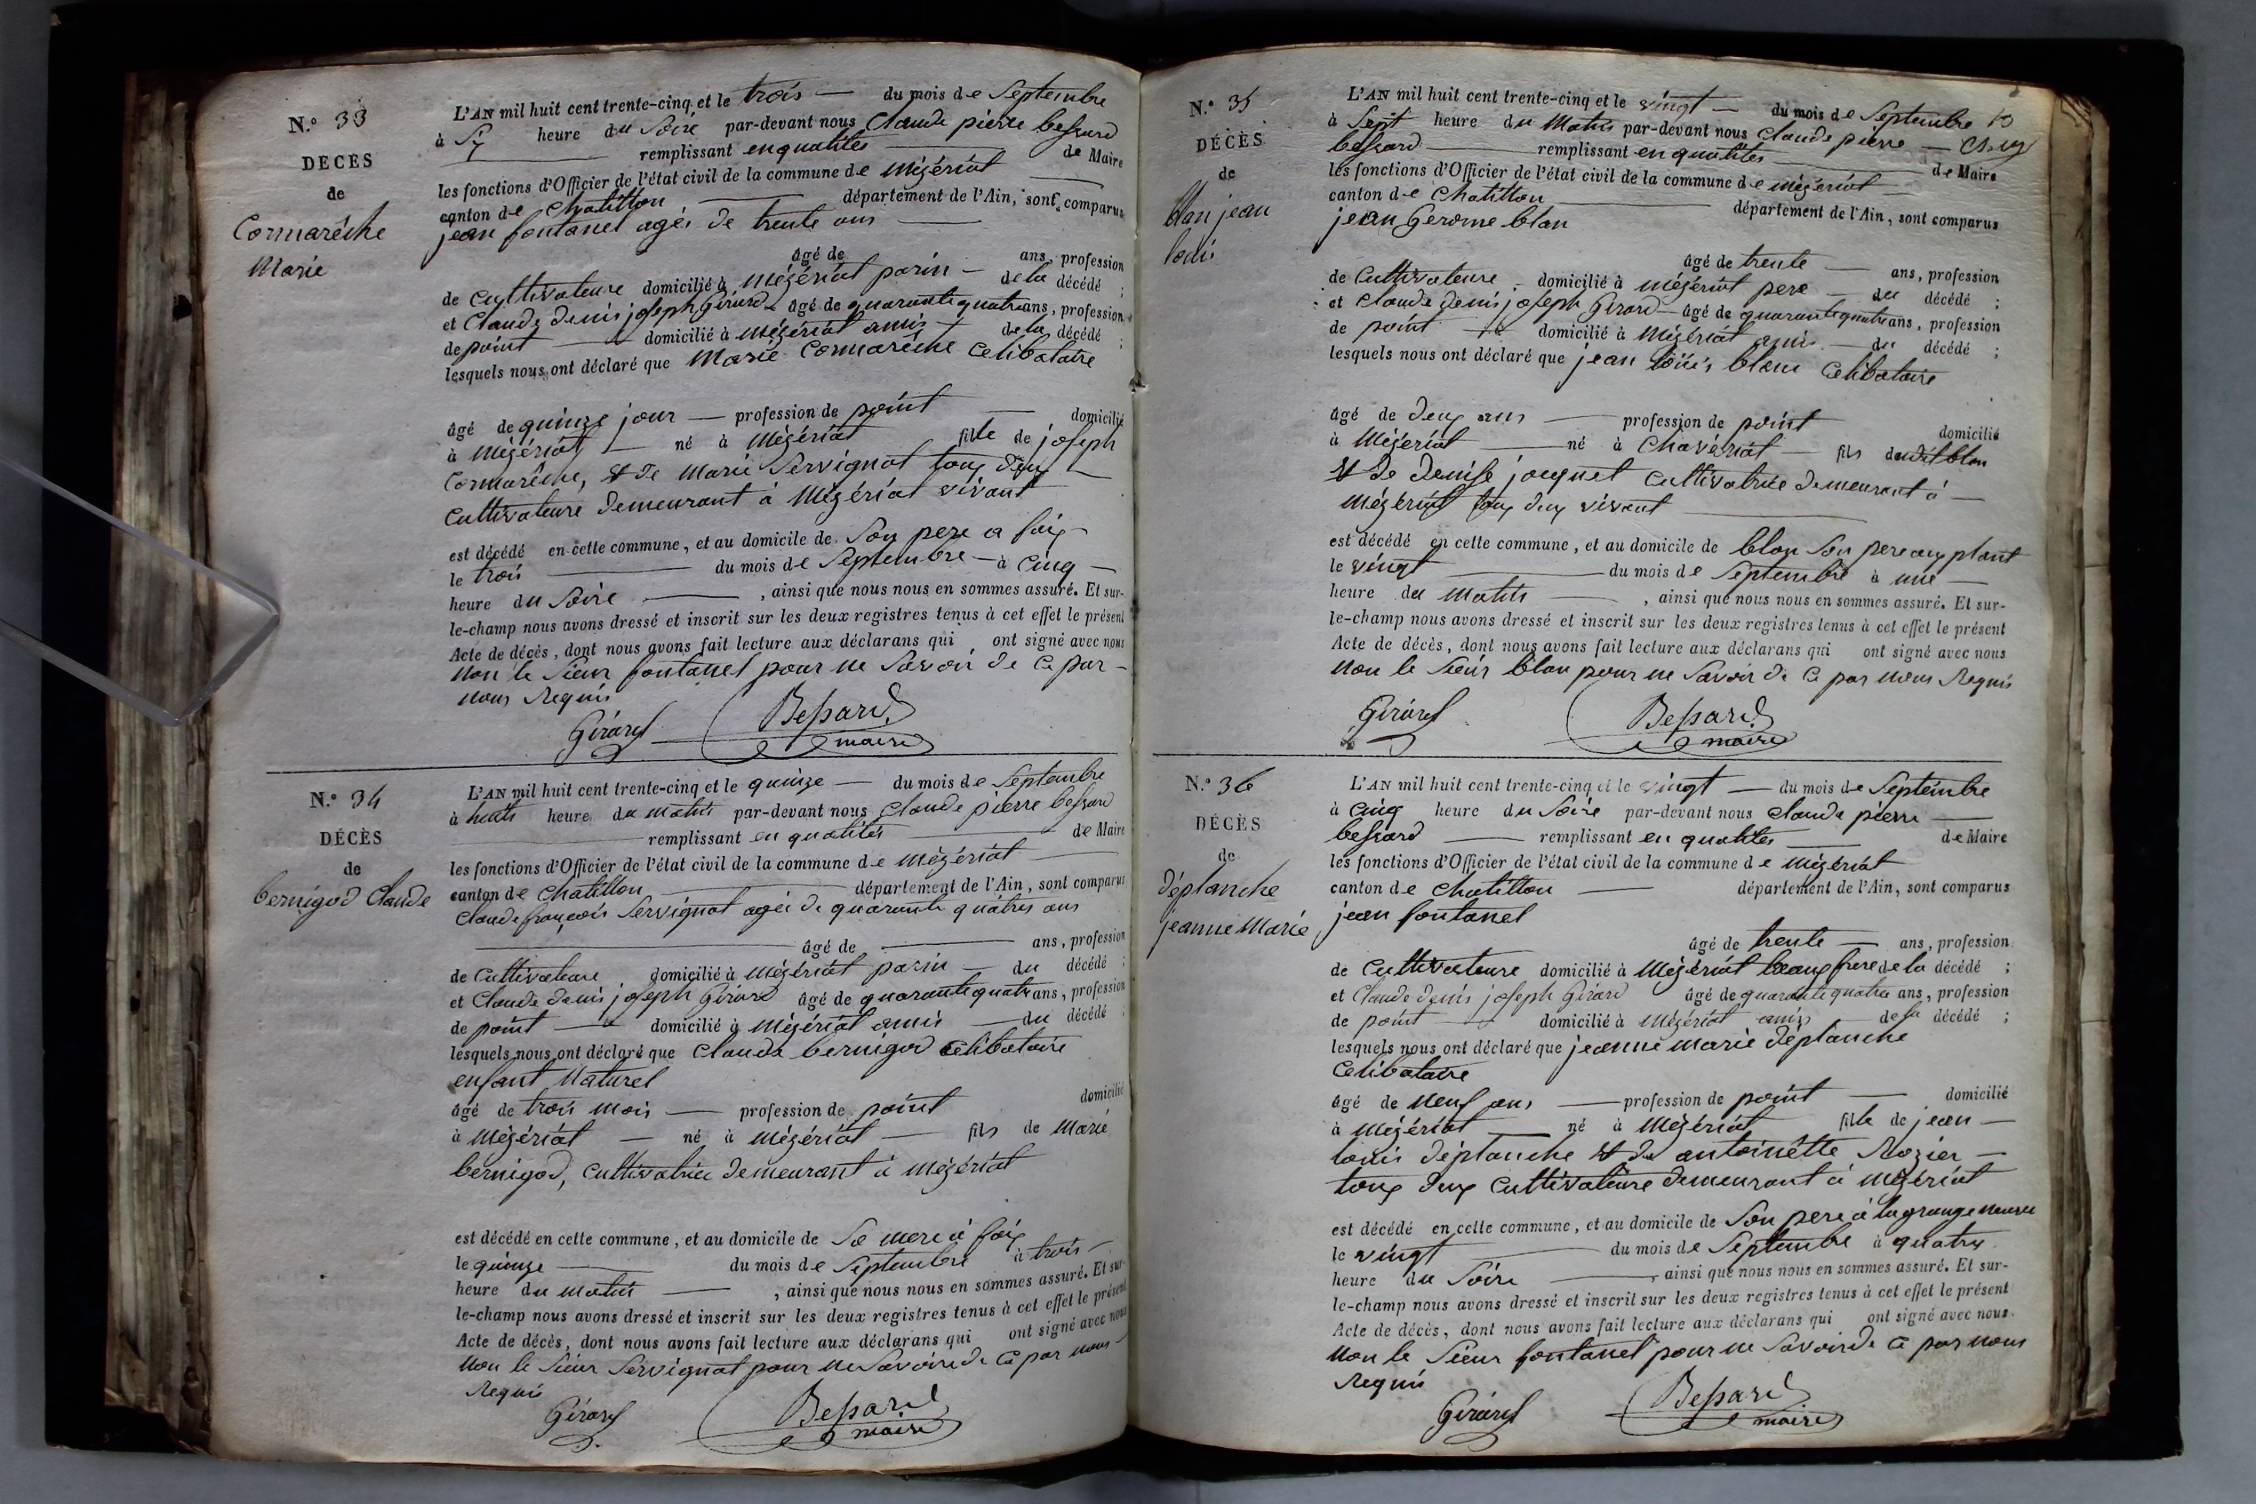 N.° 33
DÉCÈS
de
Cormarêche
Marie
L'AN mil huit cent trente-cinq et le trois — du mois de Septembre
à Six heure du Soire par-devant nous Claude pierre bessard
remplissant en qualités de Maire
les fonctions d'Officier de l'état civil de la commune de Mézériat
canton de Chatillon département de l'Ain, sont comparus
jean fontanel agés de trente ans
âgé de ans, profession
de Cultivateure domicilié à Mézériat parin — de la décédé ;
et Claude denis joseph Girard âgé de quarante quatre ans, profession
de point domicilié à Mézériat amis — de la décédé ;
lesquels nous ont déclaré que Marie Cormarêche Celibataire
âgé de quinze jour — profession de point domicilié
à Mézériat — né à Mézériat fille de joseph
Cormarêche, & de Marie Servignat tous deux
Cultivateure demeurant à Mézériat vivant
est décédé en cette commune, et au domicile de Son pere a foix
le trois du mois de Septembre — à Cinq —
heure du Soire , ainsi que nous nous en sommes assuré. Et sur-
le-champ nous avons dressé et inscrit sur les deux registres tenus à cet effet le présent
Acte de décès, dont nous avons fait lecture aux déclarans qui ont signé avec nous
Non le Sieur fontanel pour ne Savoir de Ce par —
nous Requis
Girard Bessard
maire
N.° 34
DÉCÈS
de
bernigod Claude
L'AN mil huit cent trente-cinq et le quinze — du mois de Septembre
à huits heure du matin par-devant nous Claude pierre bessard
remplissant en qualités de Maire
les fonctions d'Officier de l'état civil de la commune de Mézériat
canton de Chatillon département de l'Ain, sont comparus
Claude françois Servignat agés de quarante quatres ans
âgé de ans, profession
de Cultivateure domicilié à Mézériat parin — du décédé ;
et Claude denis joseph Girard âgé de quarante quatre ans, profession
de point domicilié à Mézériat amis — du décédé ;
lesquels nous ont déclaré que Claude bernigod Celibataire
enfant Naturel
âgé de trois mois — profession de point domicilié
à Mézériat — né à Mézériat — fils de Marie
bernigod, Cultivatrice demeurant à Mézériat
est décédé en cette commune, et au domicile de Sa mere à foix
le quinze du mois de Septembre à trois —
heure du matin , ainsi que nous nous en sommes assuré. Et sur-
le-champ nous avons dressé et inscrit sur les deux registres tenus à cet effet le présent
Acte de décès, dont nous avons fait lecture aux déclarans qui ont signé avec nous
Non le Sieur Servignat pour ne Savoire de Ce par nous
Requis
Girard Bessard
maire
N.° 35
DÉCÈS
de
blan jean
louis
L'AN mil huit cent trente-cinq et le vingt — du mois de Septembre
à Sept heure du Matin par-devant nous Claude pierre —
bessard remplissant en qualités de Maire
les fonctions d'Officier de l'état civil de la commune de Mézériat
canton de Chatillon département de l'Ain, sont comparus
jean Gerome blan
âgé de trente — ans, profession
de Cultivateure domicilié à Mézériat pere — du décédé ;
et Claude denis joseph Girard — âgé de quarante quatre ans, profession
de point domicilié à Mézériat amis — du décédé ;
lesquels nous ont déclaré que jean louis blan Celibataire
âgé de deux ans — profession de point domicilié
à Mézériat né à Chavériat — fils dudit blan
& de denise joignet Cultivatrice demeurant à —
Mézériat tous deux vivant
est décédé en cette commune, et au domicile de blan Son pere aux plant
le vingt du mois de Septembre à une —
heure du Matin , ainsi que nous nous en sommes assuré. Et sur-
le-champ nous avons dressé et inscrit sur les deux registres tenus à cet effet le présent
Acte de décès, dont nous avons fait lecture aux déclarans qui ont signé avec nous
Non le Sieur blan pour ne Savoir de Ce par nous Requis
Girard Bessard
maire
N.° 36
DÉCÈS
de
déplanche
jeanne Marie
L'AN mil huit cent trente-cinq et le vingt — du mois de Septembre
à Cinq heure du Soire par-devant nous Claude pierre —
bessard remplissant en qualités de Maire
les fonctions d'Officier de l'état civil de la commune de Mézériat
canton de Chatillon département de l'Ain, sont comparus
jean fontanel
âgé de trente — ans, profession
de Cultivateure domicilié à Mézériat beaux frere de la décédé ;
et Claude denis joseph Girard âgé de quarante quatre ans, profession
de point domicilié à Mézériat amis de la décédé ;
lesquels nous ont déclaré que jeanne marie déplanche
Celibataire
âgé de Neuf ans — profession de point — domicilié
à Mézériat — né à Mézériat fille de jean —
louis déplanche & de antoinette Rozier —
tous deux Cultivateure demeurant à Mézériat
est décédé en cette commune, et au domicile de Son pere à la grange neuve
le vingt du mois de Septembre à quatre
heure du Soire , ainsi que nous nous en sommes assuré. Et sur-
le-champ nous avons dressé et inscrit sur les deux registres tenus à cet effet le présent
Acte de décès, dont nous avons fait lecture aux déclarans qui ont signé avec nous
Non le Sieur fontanel pour ne Savoir de Ce par nous
Requis
Girard Bessard
maire